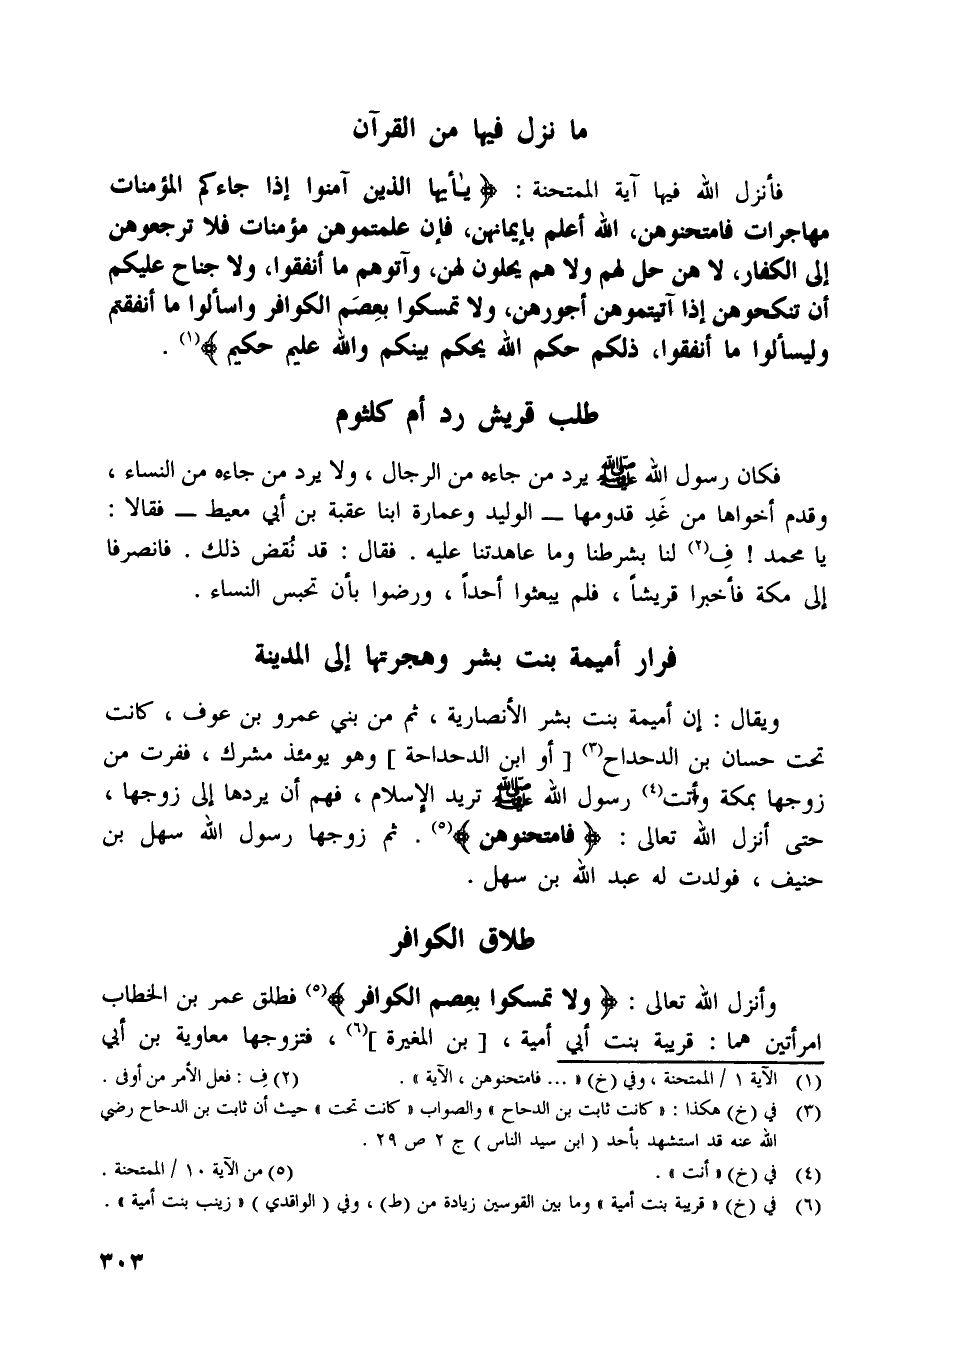 ما نزل فيها من القرآن
فأنزل الله فيها آية الممتحنة : ﴿ يـٰأيها الذين آمنوا إذا جاءكم المؤمنات
مهاجرات فامتحنوهن، الله أعلم بإيمانهن، فإن علمتموهن مؤمنات فلا ترجعوهن
إلى الكفار، لا هن حل لهم ولا هم يحلون لهن، وآتوهم ما أنفقوا، ولا جناح عليكم
أن تنكحوهن إذا آتيتموهن أجورهن، ولا تمسكوا بعِصَم الكوافر واسألوا ما أنفقتم
وليسألوا ما أنفقوا، ذلكم حكم الله يحكم بينكم والله عليم حكيم ﴾(١) .
طلب قريش رد أم كلثوم
فكان رسول الله ﷺ يرد من جاءه من الرجال ، ولا يرد من جاءه من النساء ،
وقدم أخواها من غَدِ قدومها ــ الوليد وعمارة ابنا عقبة بن أبي معيط ــ فقالا :
يا محمد ! فِ(٢) لنا بشرطنا وما عاهدتنا عليه . فقال : قد نُقض ذلك . فانصرفا
إلى مكة فأخبرا قريشاً ، فلم يبعثوا أحداً ، ورضوا بأن تحبس النساء .
فرار أميمة بنت بشر وهجرتها إلى المدينة
ويقال : إن أميمة بنت بشر الأنصارية ، ثم من بني عمرو بن عوف ، كانت
تحت حسان بن الدحداح(٣) [ أو ابن الدحداحة ] وهو يومئذ مشرك ، ففرت من
زوجها بمكة وأتت(٤) رسول الله ﷺ تريد الإسلام ، فهم أن يردها إلى زوجها ،
حتى أنزل الله تعالى : ﴿ فامتحنوهن ﴾(٥) . ثم زوجها رسول الله سهل بن
حنيف ، فولدت له عبد الله بن سهل .
طلاق الكوافر
وأنزل الله تعالى : ﴿ ولا تمسكوا بعِصم الكوافر ﴾(٥) فطلق عمر بن الخطاب
امرأتين هما : قريبة بنت أبي أمية ، [ بن المغيرة ](٦) ، فتزوجها معاوية بن أبي
(١) الآية ١ / الممتحنة ، وفي (خ) « ... فامتحنوهن ، الآية » . (٢) فِ : فعل الأمر من أوفى .
(٣) في (خ) هكذا : « كانت ثابت بن الدحاح » والصواب « كانت تحت » حيث أن ثابت بن الدحاح رضي
الله عنه قد استشهد بأحد ( ابن سيد الناس ) ج ٢ ص ٢٩ .
(٤) في (خ) « أنت » . (٥) من الآية ١٠ / الممتحنة .
(٦) في (خ) « قريبة بنت أمية » وما بين القوسين زيادة من (ط) ، وفي ( الواقدي ) « زينب بنت أمية » .
٣٠٣